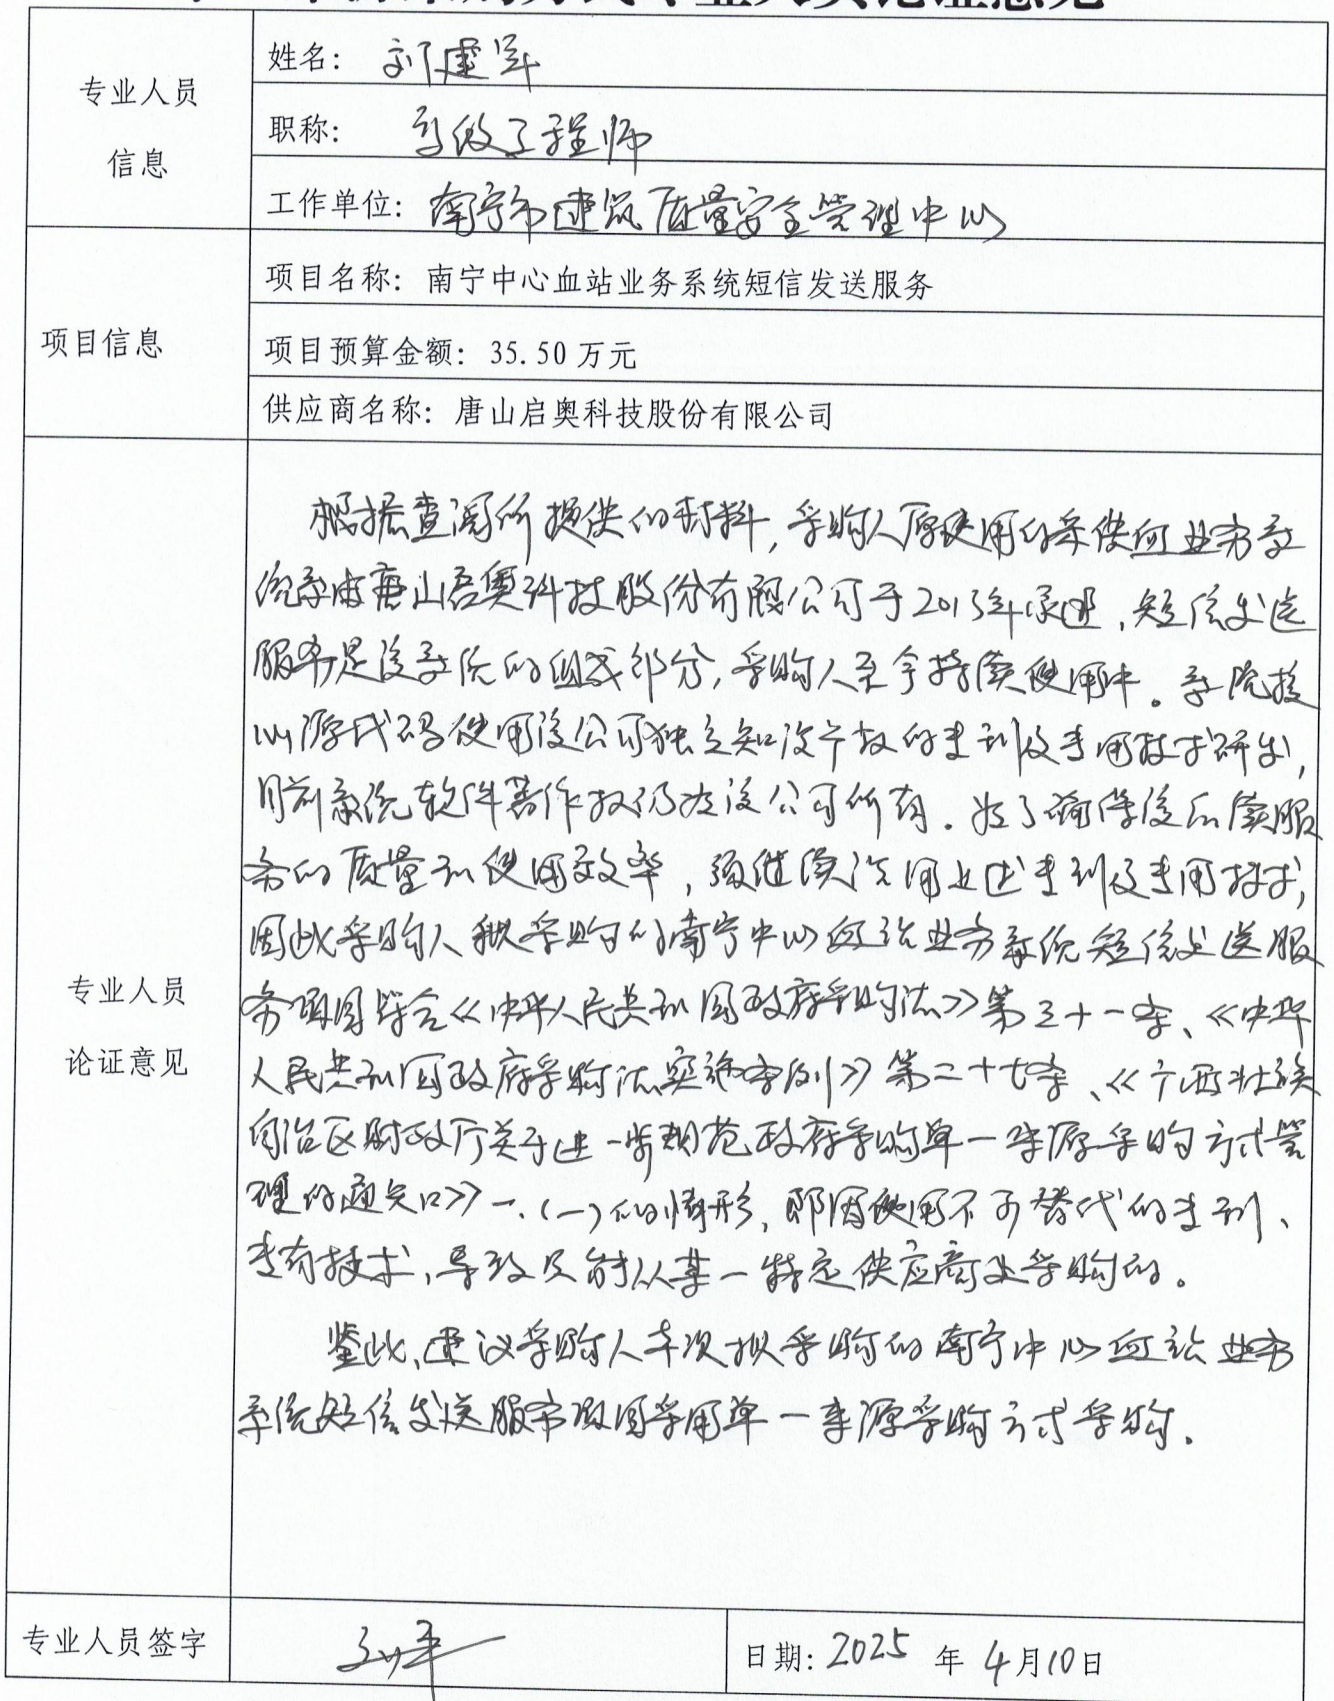 专业人员
信息
姓名：刘建军
职称：高级工程师
工作单位：南宁市建筑质量安全管理中心
项目信息
项目名称：南宁中心血站业务系统短信发送服务
项目预算金额：35.50万元
供应商名称：唐山启奥科技股份有限公司
专业人员
论证意见
根据查阅所提供的材料，采购人原使用的采供血业务系
统系由唐山启奥科技股份有限公司于2013年承建，短信发送
服务是该系统的组成部分，采购人至今持续使用中。系统核
心源代码使用该公司独立知识产权的专利及专用技术研发，
目前系统软件著作权仍为该公司所有。为了确保该后续服
务的质量和使用效率，须继续沿用上述专利及专用技术，
因此采购人拟采购的南宁中心血站业务系统短信发送服
务项目符合《中华人民共和国政府采购法》第三十一条、《中华
人民共和国政府采购法实施条例》第二十七条、《广西壮族
自治区财政厅关于进一步规范政府采购单一来源采购方式管
理的通知》一.（一）的情形，即因使用不可替代的专利、
专有技术，导致只能从某一特定供应商处采购的。
鉴此，建议采购人本次拟采购的南宁中心血站业务
系统短信发送服务项目采用单一来源采购方式采购。
专业人员签字
日期：2025年4月10日